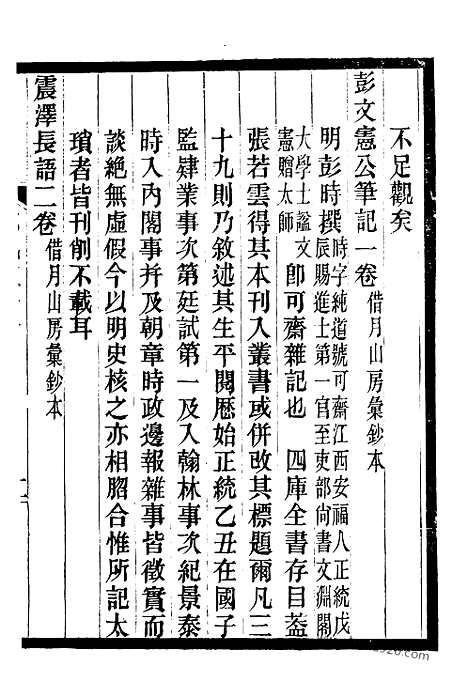 不足觀矣
彭文憲公筆記一卷 借月山房彙鈔本
明彭時撰 時字純道號可齋江西安福人正統戊
辰賜進士第一官至吏部尙書文淵閣
大學士謚文
憲贈太師 卽可齋雜記也 四庫全書存目葢
張若雲得其本刊入叢書或併改其標題爾凡三
十九則乃敘述其生平閱歷始正統乙丑在國子
監肄業事次第廷試第一及入翰林事次紀景泰
時入內閣事幷及朝章時政邊報雜事皆徵實而
談絕無虛假今以明史核之亦相脗合惟所記太
瑣者皆刊削不載耳
震澤長語二卷 借月山房彙鈔本